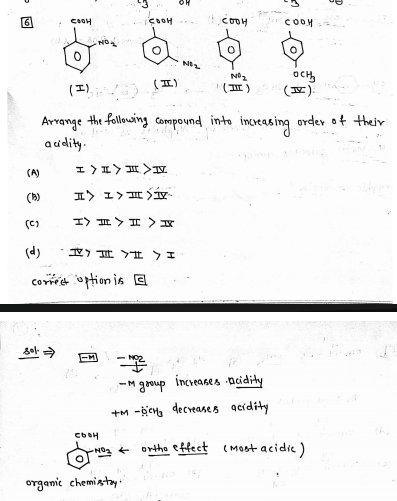 CH3 OH
6
COOH COOH COOH COOH
NO2
NO2
NO2
OCH3
(I) (II) (III) (IV)
Arrange the following compound into increasing order of their
acidity.
(A) I > II > III > IV
(B) II > I > III > IV
(C) I > III > II > IV
(d) IV > III > II > I
correct option is C
Sol. ⇒ -M - NO2
-M group increases acidity
+M -ÖCH3 decreases acidity
COOH
NO2 ← ortho effect (Most acidic)
organic chemistry.